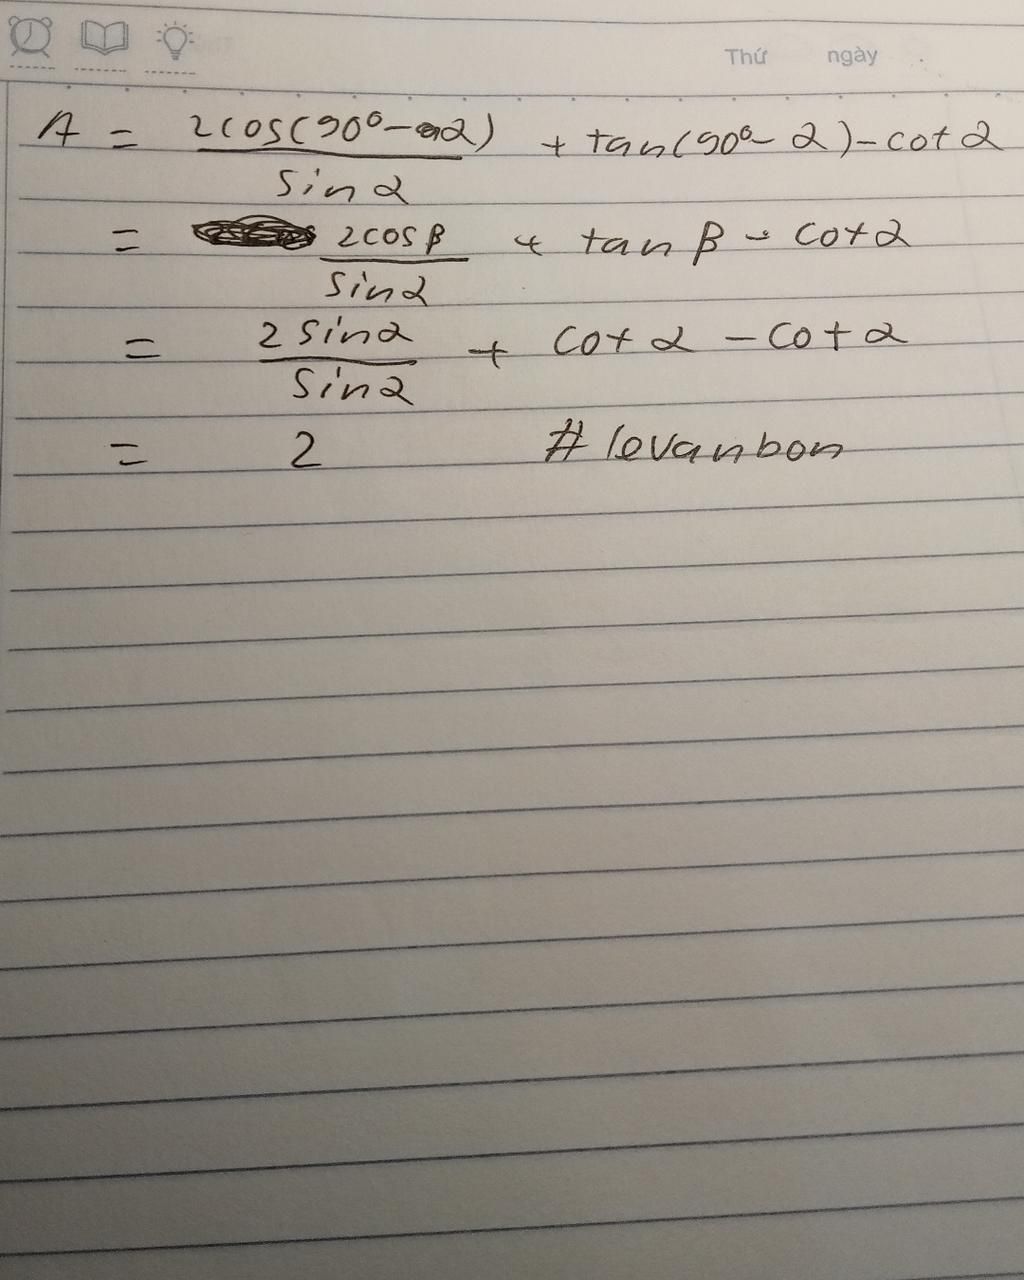 Thứ ngày
A = 2cos(90° - α) / sin α + tan(90° - α) - cot α
= 2cos β / sin α + tan β - cot α
= 2 sin α / sin α + cot α - cot α
= 2 # levanbon